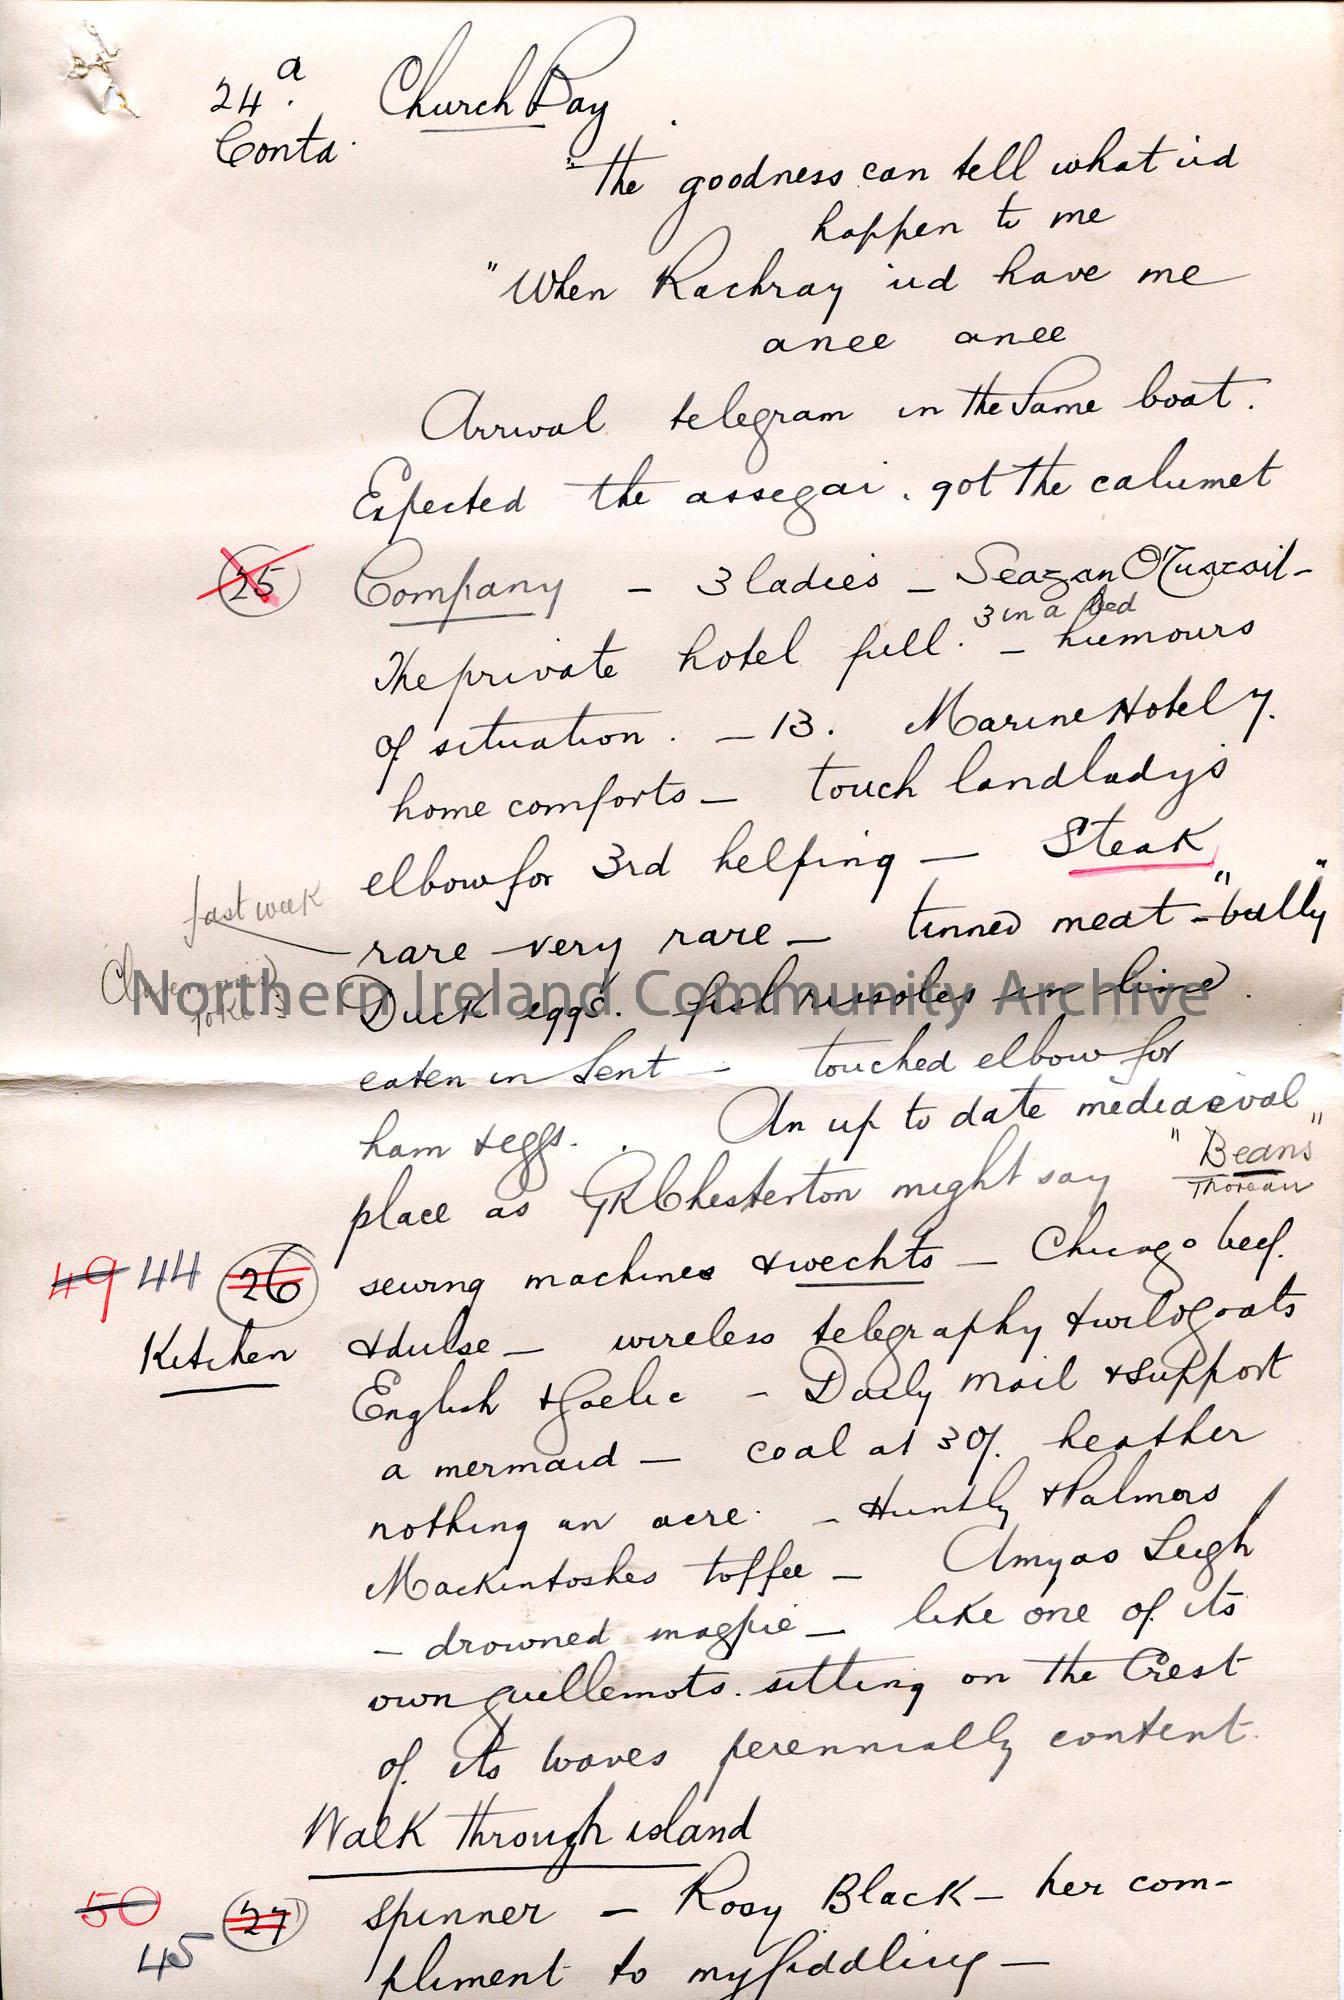 24a. Church Bay.
Contd.
"The goodness can tell what ud
happen to me
"When Rachray ud have me
anee anee
Arrival telegram in the same boat.
Expected the assegai. got the calumet
25 Company - 3 ladies - Seagan
3 in a bed
The private hotel full. - humours
of situation. - 13. Marine Hotel 7.
home comforts - touch landlady's
elbow for 3rd helping - Steak
fast week
rare - very rare - tinned meat - "bully"
joke
Duck eggs. fish rissoles in lime.
eaten in Lent - touched elbow for
ham & eggs. . An up to date mediaeval
place as GK Chesterton might say "Beans"
Thoreau
49 44 26 sewing machines & wechts - Chicago beef.
Kitchen & dulse - wireless telegraphy & wild goats
English & Gaelic - Daily Mail & support
a mermaid - coal at 30/. heather
nothing an acre. - Huntly & Palmers
Mackintoshes toffee - Amyas Leigh
- drowned magpie - like one of its
own guillemots. sitting on the Crest
of its waves perennially content.
Walk through island
50 45 27 spinner - Rosy Black - her com-
pliment to my fiddling -
Northern Ireland Community Archive